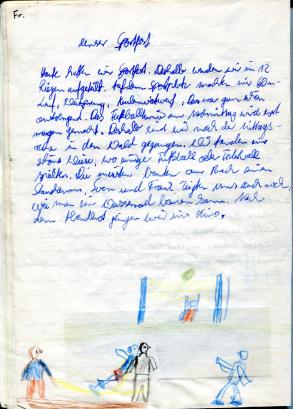 Fr.
Unser Sportfest
Heute hatten wir Sportfest. Deshalb wurden wir in 12
Riegen aufgeteilt. Auf dem Sportplatz machten wir 60m-
Lauf, Weitsprung, Keulenweitwurf. Das war ganz schön
anstrengend. Das Fußballturnier am Nachmittag wird erst
morgen gemacht. Deshalb sind wir nach der Mittags-
ruhe in den Wald gegangen. Wir fanden eine
schöne Wiese, wo einige Fußball oder Federball
spielten. Die meisten bauten am Bach einen
Staudamm. Sven und Frank zeigten uns auch noch,
wie man ein Wasserrad bauen kann. Nach
dem Abendbrot gingen wir ins Kino.